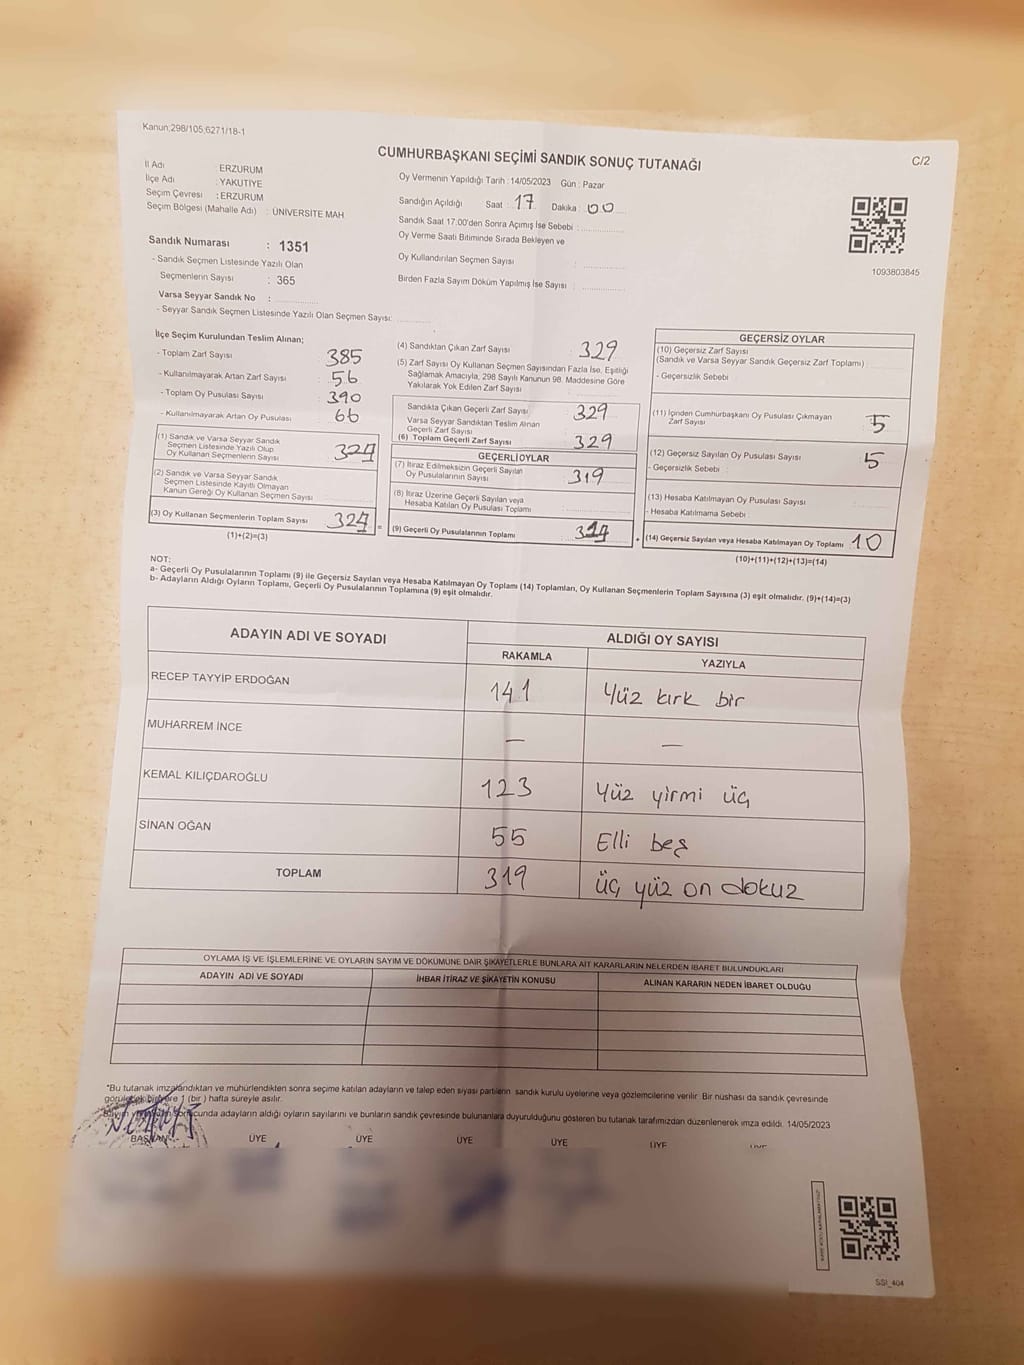 Kanun;298/105;6271/18-1
C/2
CUMHURBAŞKANI SEÇİMİ SANDIK SONUÇ TUTANAĞI
İl Adı : ERZURUM
İlçe Adı : YAKUTİYE
Seçim Çevresi : ERZURUM
Seçim Bölgesi (Mahalle Adı) : ÜNİVERSİTE MAH
Oy Vermenin Yapıldığı Tarih : 14/05/2023 Gün : Pazar
Sandığın Açıldığı Saat : 17 Dakika : 00
Sandık Saat 17:00'den Sonra Açılmış İse Sebebi :
Oy Verme Saati Bitiminde Sırada Bekleyen ve
Oy Kullandırılan Seçmen Sayısı :
Birden Fazla Sayım Döküm Yapılmış İse Sayısı :
1093803845
Sandık Numarası : 1351
- Sandık Seçmen Listesinde Yazılı Olan
Seçmenlerin Sayısı : 365
Varsa Seyyar Sandık No :
- Seyyar Sandık Seçmen Listesinde Yazılı Olan Seçmen Sayısı:
İlçe Seçim Kurulundan Teslim Alınan;
- Toplam Zarf Sayısı : 385
- Kullanılmayarak Artan Zarf Sayısı : 56
- Toplam Oy Pusulası Sayısı : 390
- Kullanılmayarak Artan Oy Pusulası : 66
(1) Sandık ve Varsa Seyyar Sandık
Seçmen Listesinde Yazılı Olup
Oy Kullanan Seçmenlerin Sayısı
(2) Sandık ve Varsa Seyyar Sandık
Seçmen Listesinde Kayıtlı Olmayan
Kanun Gereği Oy Kullanan Seçmen Sayısı :
(3) Oy Kullanan Seçmenlerin Toplam Sayısı
(1)+(2)=(3)
(4) Sandıktan Çıkan Zarf Sayısı : 329
(5) Zarf Sayısı Oy Kullanan Seçmen Sayısından Fazla İse, Eşitliği
Sağlamak Amacıyla, 298 Sayılı Kanunun 98. Maddesine Göre
Yakılarak Yok Edilen Zarf Sayısı :
Sandıkta Çıkan Geçerli Zarf Sayısı : 329
Varsa Seyyar Sandıktan Teslim Alınan
Geçerli Zarf Sayısı
(6) Toplam Geçerli Zarf Sayısı : 329
GEÇERLİ OYLAR
(7) İtiraz Edilmeksizin Geçerli Sayılan
Oy Pusulalarının Sayısı : 319
(8) İtiraz Üzerine Geçerli Sayılan veya
Hesaba Katılan Oy Pusulası Toplamı
(9) Geçerli Oy Pusulalarının Toplamı
GEÇERSİZ OYLAR
(10) Geçersiz Zarf Sayısı
(Sandık ve Varsa Seyyar Sandık Geçersiz Zarf Toplamı) :
- Geçersizlik Sebebi :
(11) İçinden Cumhurbaşkanı Oy Pusulası Çıkmayan
Zarf Sayısı : 5
(12) Geçersiz Sayılan Oy Pusulası Sayısı : 5
- Geçersizlik Sebebi :
(13) Hesaba Katılmayan Oy Pusulası Sayısı
- Hesaba Katılmama Sebebi :
(14) Geçersiz Sayılan veya Hesaba Katılmayan Oy Toplamı 10
(10)+(11)+(12)+(13)=(14)
NOT:
a- Geçerli Oy Pusulalarının Toplamı (9) ile Geçersiz Sayılan veya Hesaba Katılmayan Oy Toplamı (14) Toplamları, Oy Kullanan Seçmenlerin Toplam Sayısına (3) eşit olmalıdır. (9)+(14)=(3)
b- Adayların Aldığı Oyların Toplamı, Geçerli Oy Pusulalarının Toplamına (9) eşit olmalıdır.
ADAYIN ADI VE SOYADI
ALDIĞI OY SAYISI
RAKAMLA YAZIYLA
RECEP TAYYİP ERDOĞAN 141 Yüz kırk bir
MUHARREM İNCE — —
KEMAL KILIÇDAROĞLU 123 Yüz yirmi üç
SİNAN OĞAN 55 Elli beş
TOPLAM 319 üç yüz on dokuz
OYLAMA İŞ VE İŞLEMLERİNE VE OYLARIN SAYIM VE DÖKÜMÜNE DAİR ŞİKAYETLERLE BUNLARA AİT KARARLARIN NELERDEN İBARET BULUNDUKLARI
ADAYIN ADI VE SOYADI İHBAR İTİRAZ VE ŞİKAYETİN KONUSU ALINAN KARARIN NEDEN İBARET OLDUĞU
*Bu tutanak imzalandıktan ve mühürlendikten sonra seçime katılan adayların ve talep eden siyasi partilerin sandık kurulu üyelerine veya gözlemcilerine verilir. Bir nüshası da sandık çevresinde
görülecek bir yere 1 (bir ) hafta süreyle asılır.
sonucunda adayların aldığı oyların sayılarını ve bunların sandık çevresinde bulunanlara duyurulduğunu gösteren bu tutanak tarafımızdan düzenlenerek imza edildi. 14/05/2023
BAŞKAN ÜYE ÜYE ÜYE ÜYE ÜYE
SSİ_404